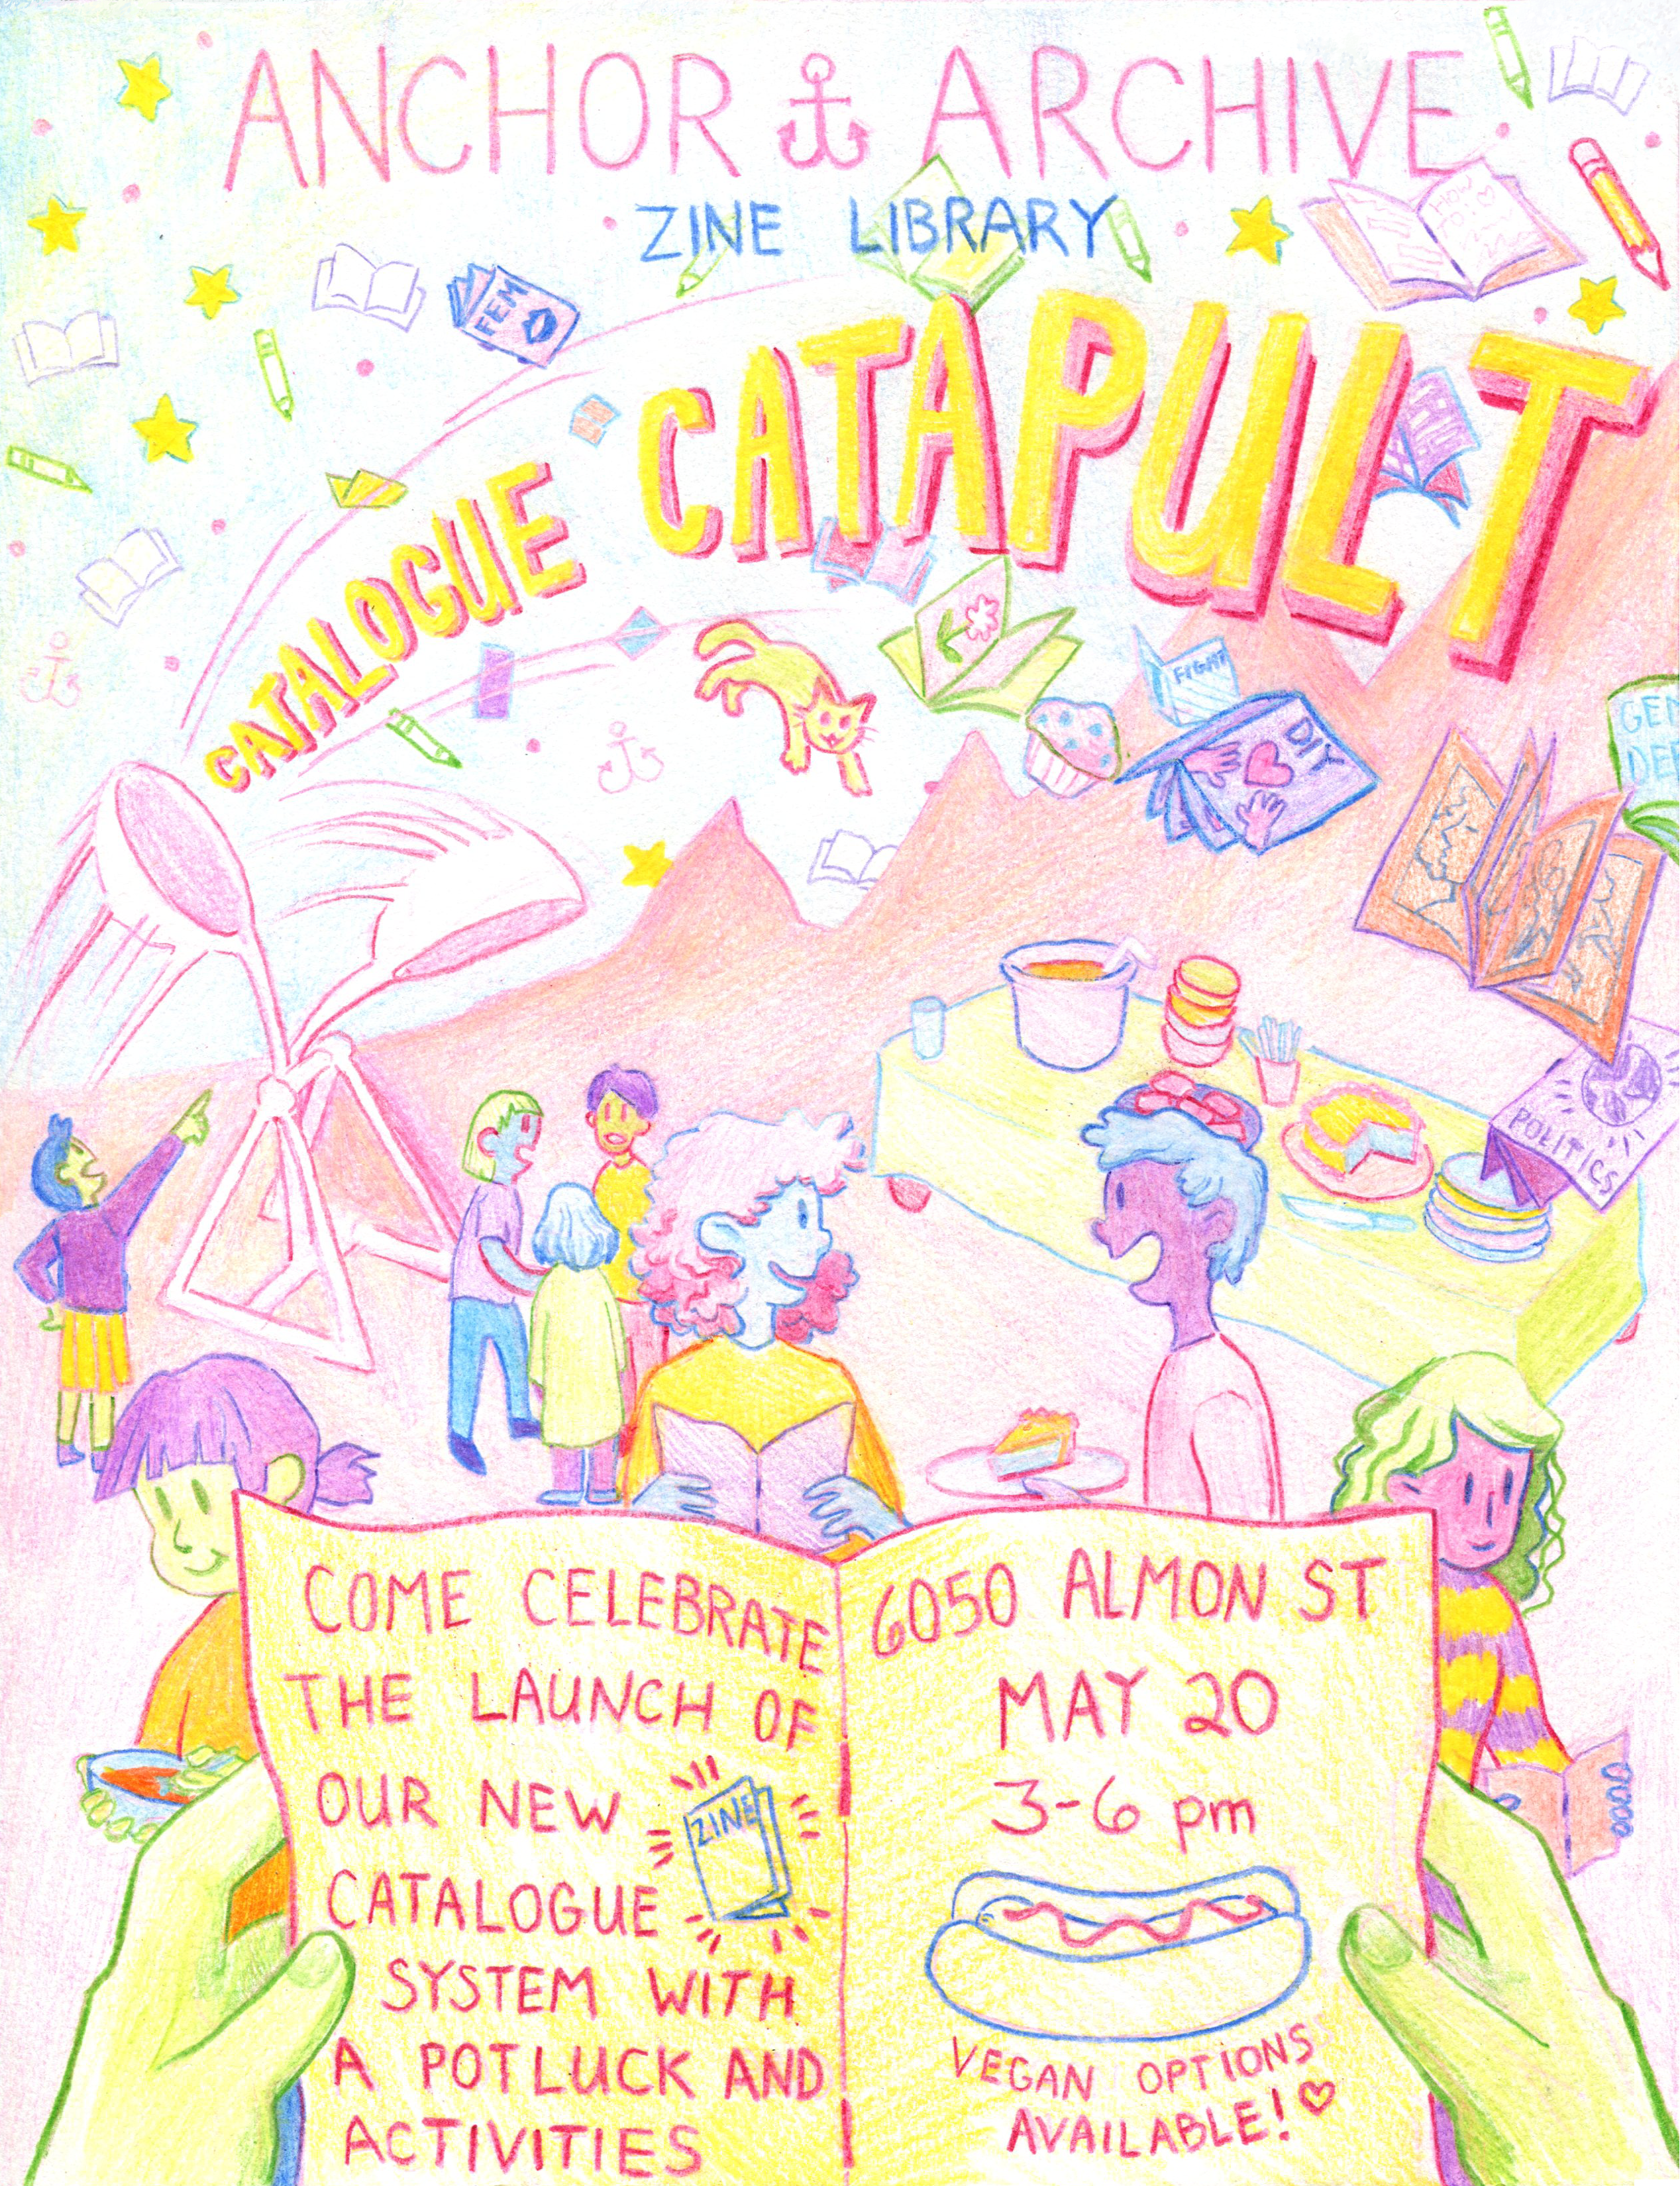 ANCHOR ARCHIVE
ZINE LIBRARY
FEM
CATALOGUE CATAPULT
FIGHT
DIY
POLITICS
COME CELEBRATE
THE LAUNCH OF
OUR NEW
ZINE
CATALOGUE
SYSTEM WITH
A POTLUCK AND
ACTIVITIES
6050 ALMON ST
MAY 20
3-6 pm
VEGAN OPTIONS
AVAILABLE!